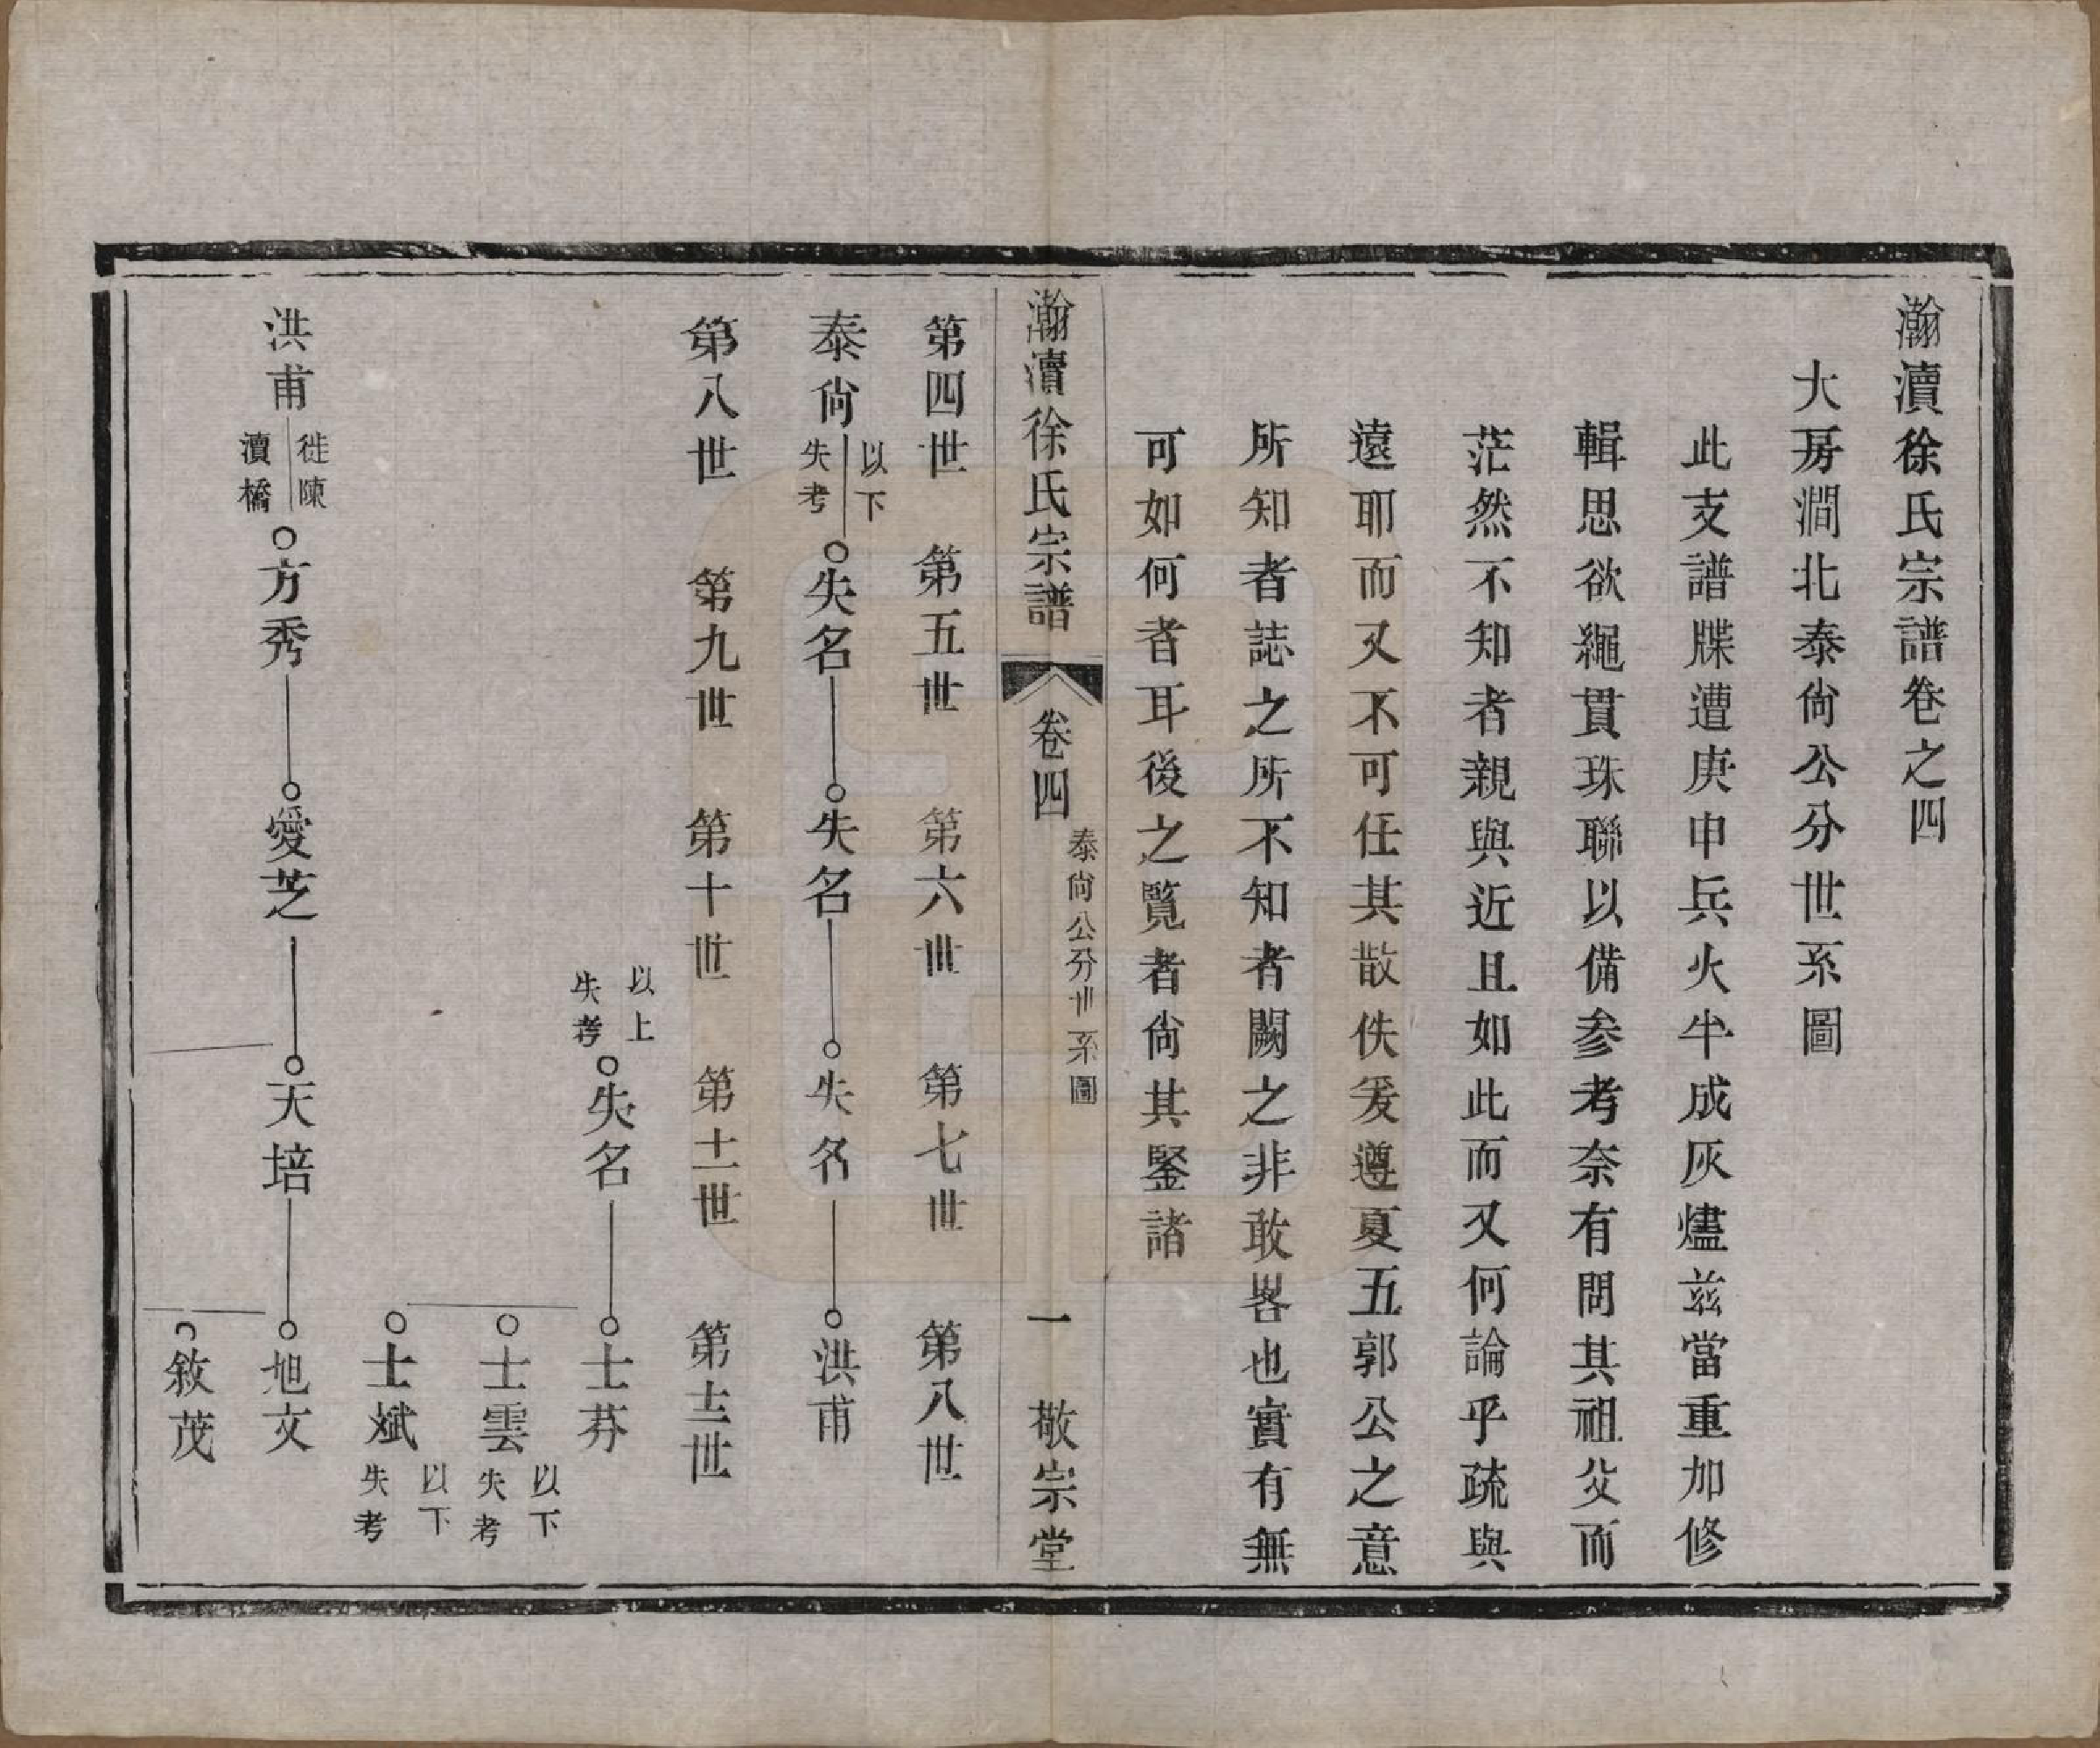 瀚瀆徐氏宗譜卷之四
大房澗北泰尙公分世系圖
此支譜牒遭庚申兵火半成灰燼茲當重加修
輯思欲繩貫珠聯以備參考奈有問其祖父而
茫然不知者親與近且如此而又何論乎疏與
遠耶而又不可任其散佚爰遵夏五郭公之意
所知者誌之所不知者闕之非敢畧也實有無
可如何者耳後之覽者尙其鑒諸
瀚瀆徐氏宗譜 卷四 泰尙公分世系圖 一 敬宗堂
第四世 第五世 第六世 第七世 第八世
泰尙 以下失考 失名 失名 失名 洪甫
第八世 第九世 第十世 第十一世 第十二世
以上失考 失名 士芬
士雲 以下失考
士斌 以下失考
洪甫 徙陳瀆橋 方秀 愛芝 天培 旭文
敘茂